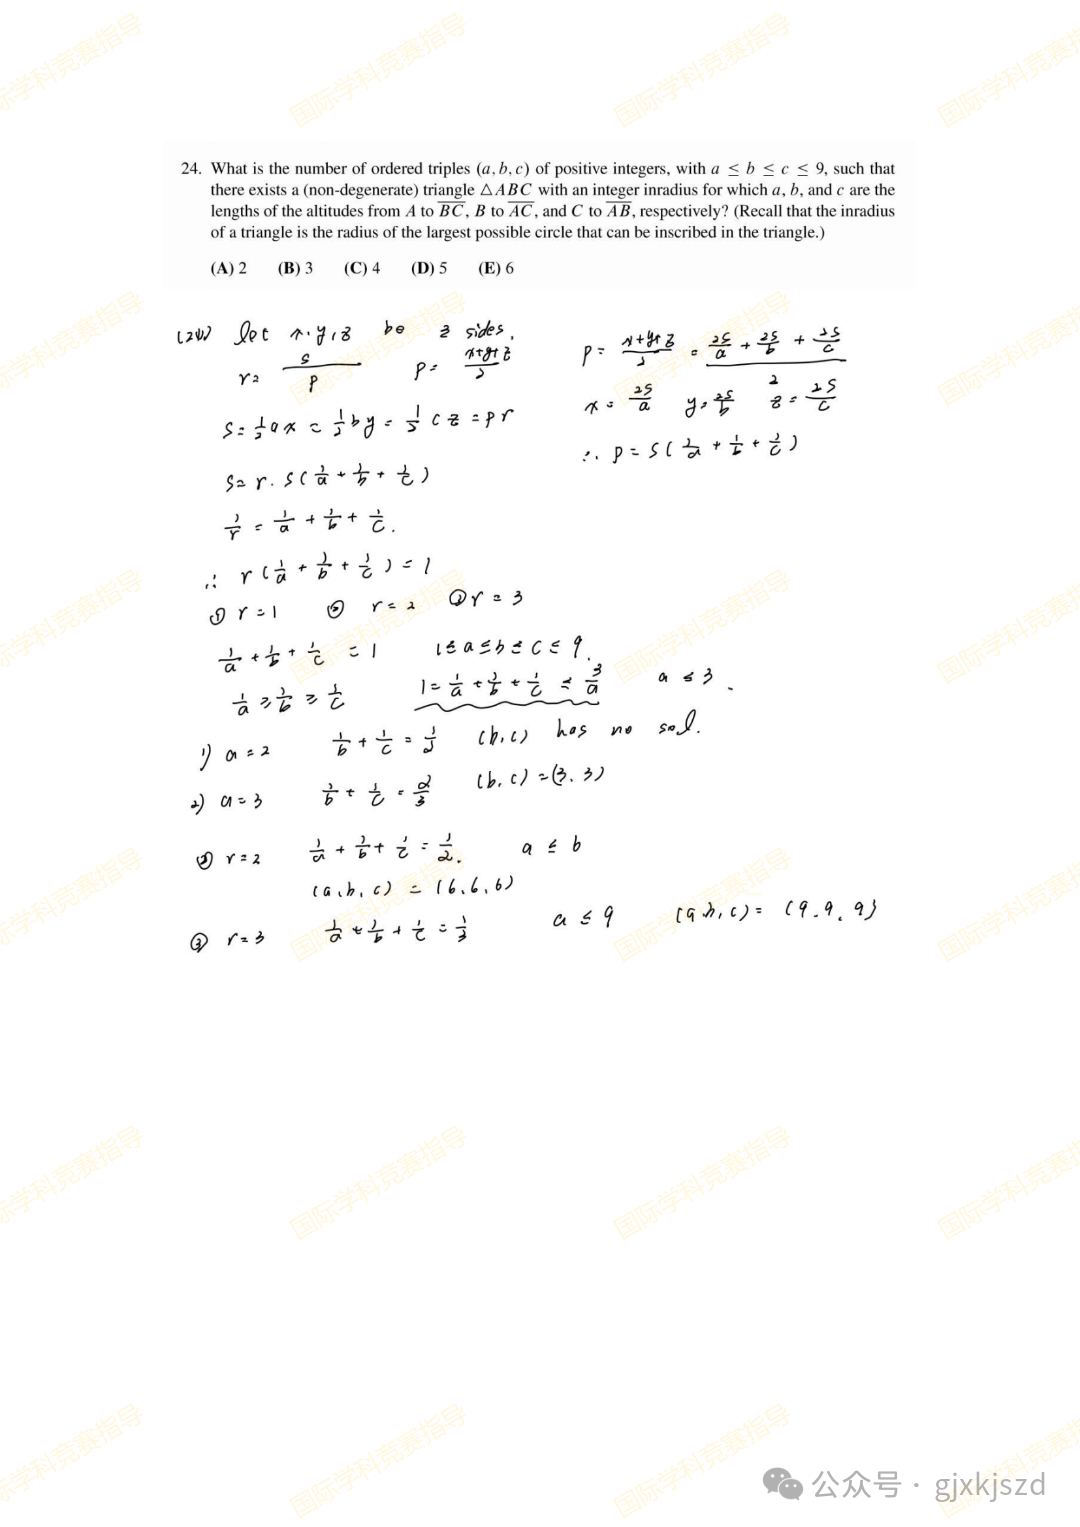 24. What is the number of ordered triples (a, b, c) of positive integers, with a ≤ b ≤ c ≤ 9, such that
there exists a (non-degenerate) triangle △ABC with an integer inradius for which a, b, and c are the
lengths of the altitudes from A to BC, B to AC, and C to AB, respectively? (Recall that the inradius
of a triangle is the radius of the largest possible circle that can be inscribed in the triangle.)
(A) 2 (B) 3 (C) 4 (D) 5 (E) 6
(24) let x, y, z be 3 sides,
r = S/P P = (x+y+z)/2
P = (x+y+z)/2 = (2S/a + 2S/b + 2S/c)/2
x = 2S/a y = 2S/b z = 2S/c
∴ P = S(1/a + 1/b + 1/c)
S = 1/2 ax = 1/2 by = 1/2 cz = pr
S = r · S(1/a + 1/b + 1/c)
1/r = 1/a + 1/b + 1/c.
∴ r(1/a + 1/b + 1/c) = 1
① r = 1 ② r = 2 ③ r = 3
1/a + 1/b + 1/c = 1 1 ≤ a ≤ b ≤ c ≤ 9.
1/a ≥ 1/b ≥ 1/c 1 = 1/a + 1/b + 1/c ≤ 3/a a ≤ 3.
1) a = 2 1/b + 1/c = 1/2 (b,c) has no sol.
2) a = 3 1/b + 1/c = 2/3 (b,c) = (3,3)
② r = 2 1/a + 1/b + 1/c = 1/2. a ≤ b
(a,b,c) = (6,6,6)
③ r = 3 1/a + 1/b + 1/c = 1/3 a ≤ 9 (a,b,c) = (9,9,9)
国际学科竞赛指导
公众号 · gjxkjszd